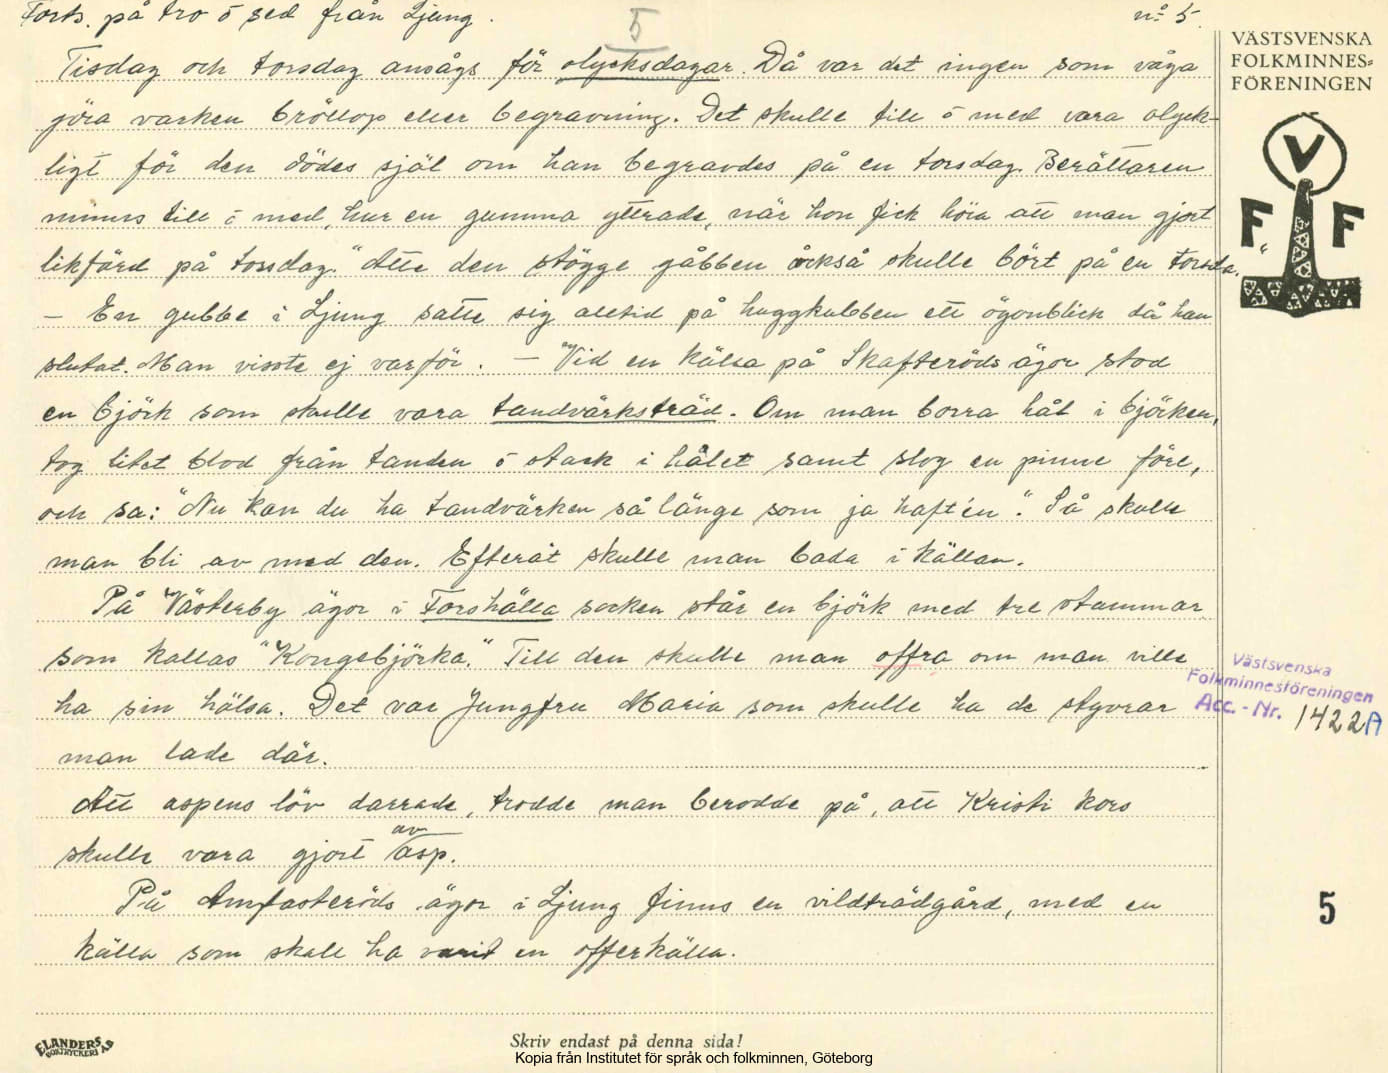 Forts. på tro ō sed från Ljung.
5
nº 5.
Tisdag och torsdag ansågs för olycksdagar. Då var det ingen som våga
göra varken bröllop eller begravning. Det skulle till ō med vara olyck-
ligt för den dödes själ om han begravdes på en torsdag. Berättaren
minns till ō med, hur en gumma yttrade, när hon fick höra att man gjort
likfärd på torsdag. "Atte den stögge gåbben åckså skulle bört på en torsda."
– En gubbe i Ljung satte sig alltid på huggkubben ett ögonblick då han
slutat. Man visste ej varför. – Vid en källa på Skafteröds ägor stod
en björk som skulle vara tandvärksträd. Om man borra hål i björken,
tog litet blod från tanden ō stack i hålet samt slog en pinne före,
och sa: "Nu kan du ha tandvärken så länge som ja haft'en". Så skulle
man bli av med den. Efteråt skulle man bada i källan.
På Västerby ägor i Forshälla socken står en björk med tre stammar
som kallas "Kongebjörka." Till den skulle man offra om man ville
ha sin hälsa. Det var Jungfru Maria som skulle ha de styvrar
man lade där.
Att aspens löv darrade, trodde man berodde på, att Kristi kors
skulle vara gjort av asp.
På Amfasteröds ägor i Ljung finns en vildträdgård, med en
källa som skall ha varit en offerkälla.
VÄSTSVENSKA
FOLKMINNES=
FÖRENINGEN
V
F F
Västsvenska
Folkminnesföreningen
Acc. - Nr. 1422A
5
ELANDERS
BOKTRYCKERI AB
Skriv endast på denna sida!
Kopia från Institutet för språk och folkminnen, Göteborg